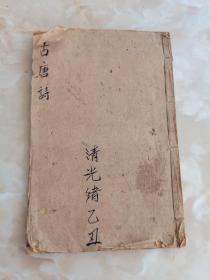 古唐詩
清光緒乙丑